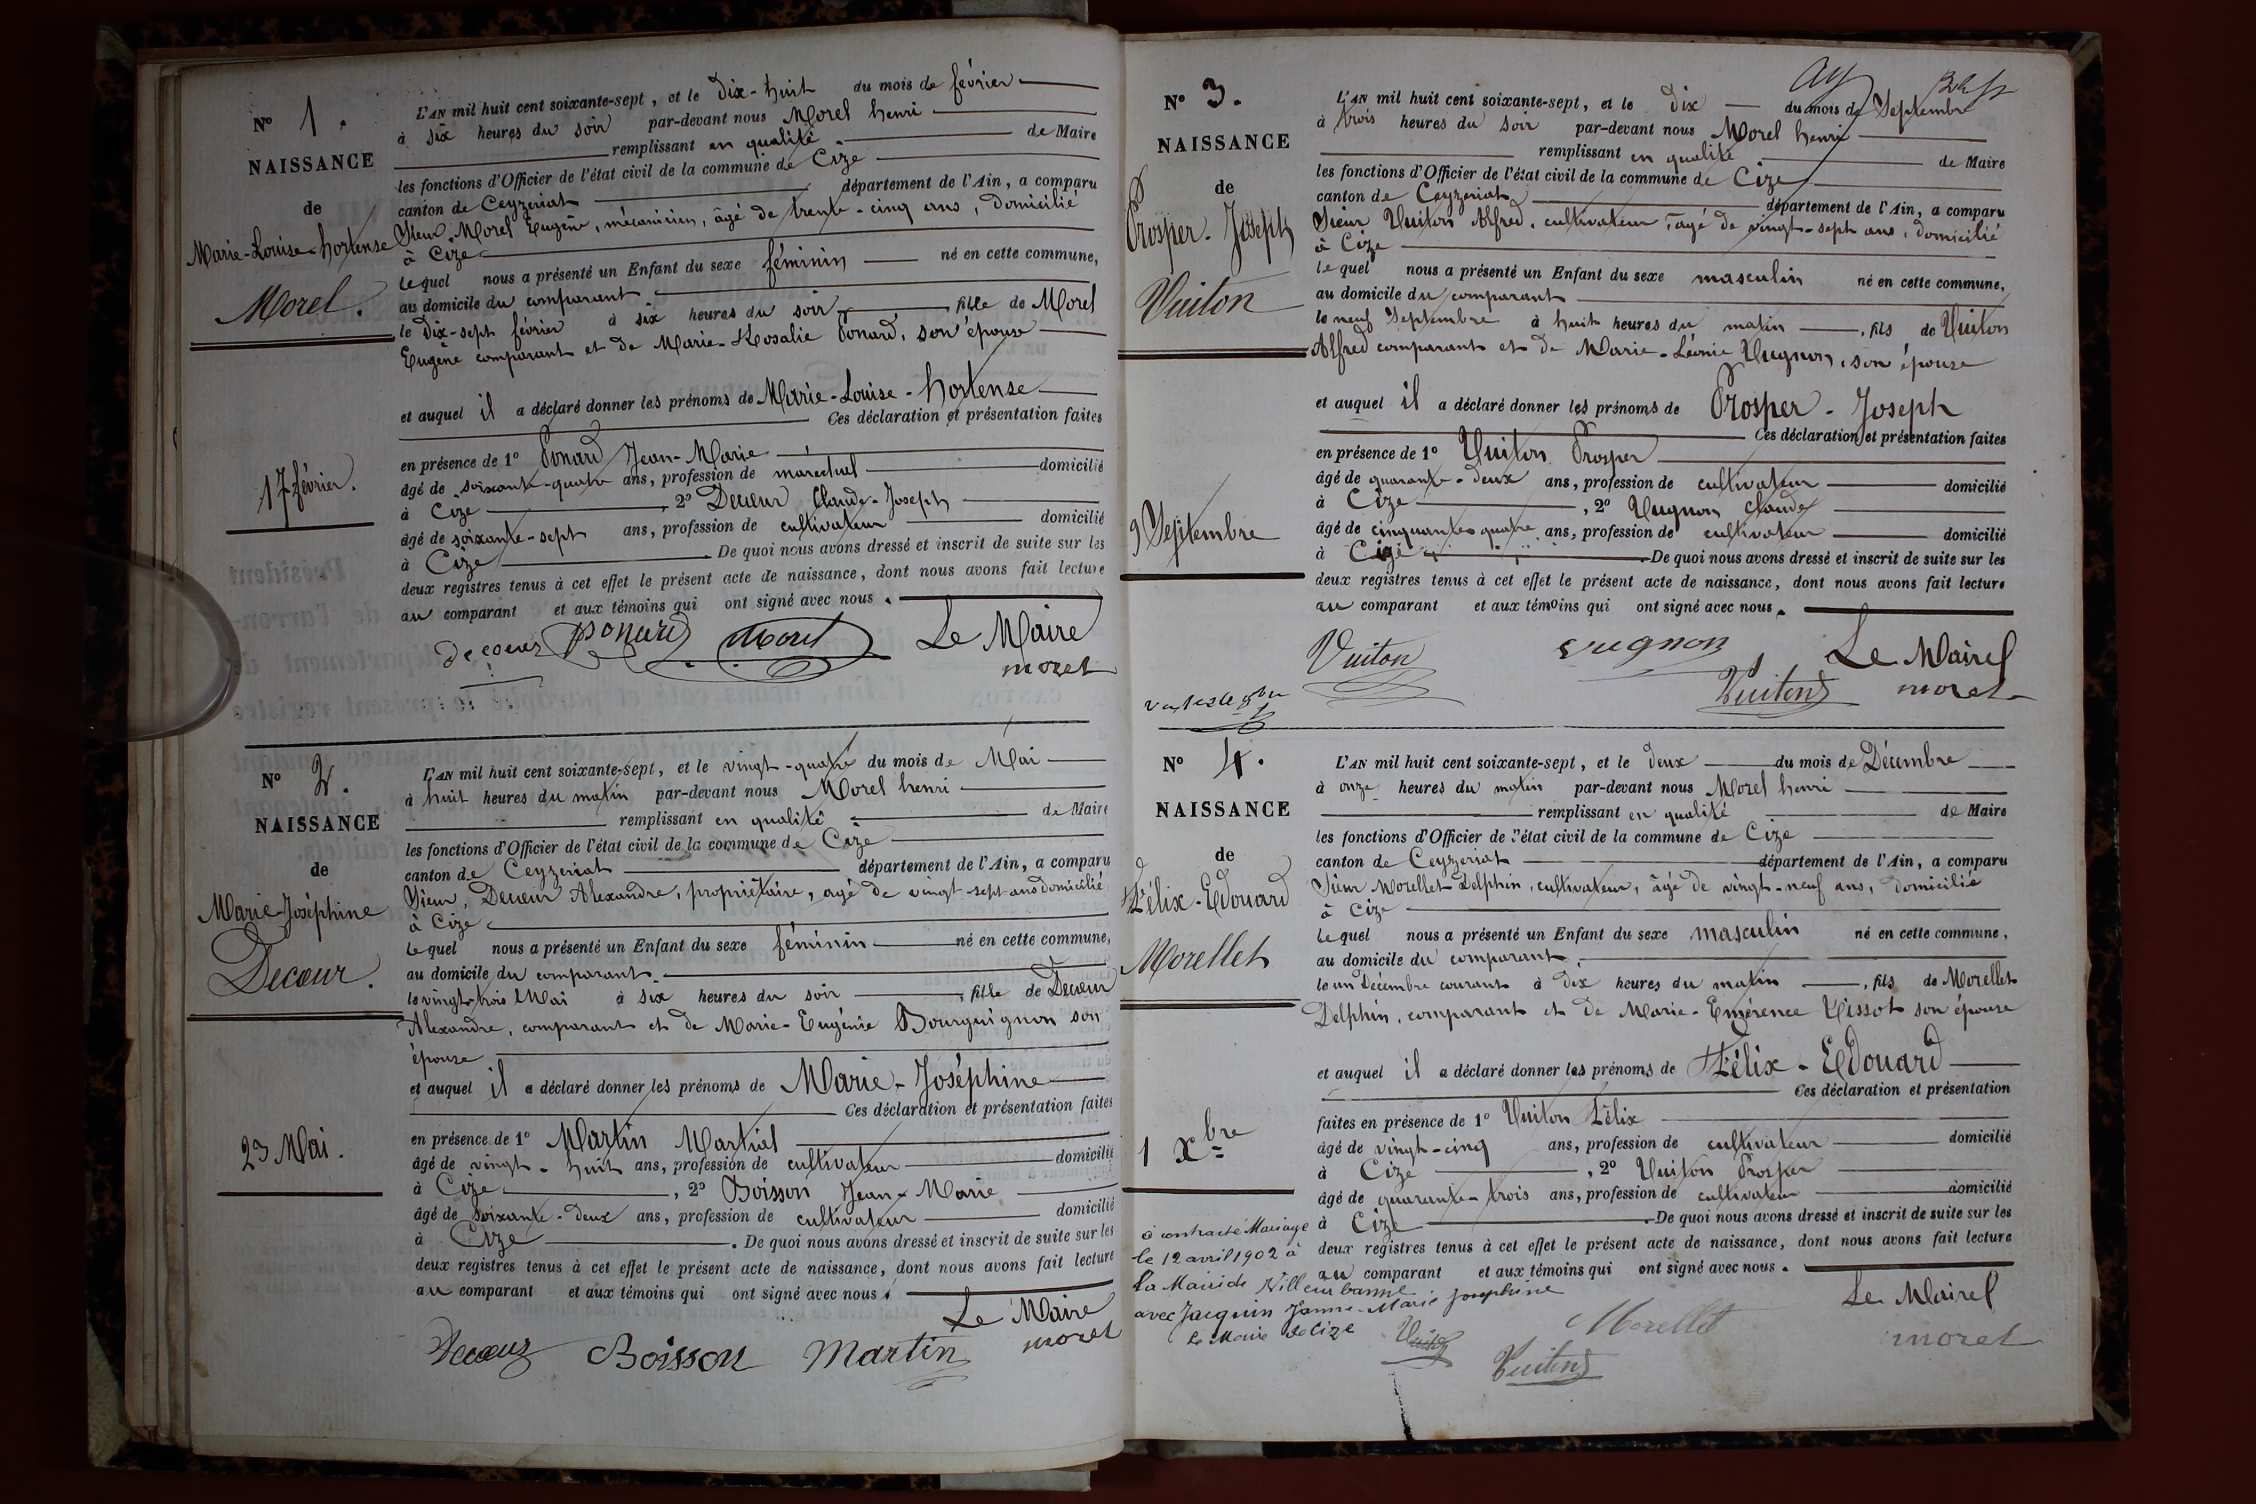 N° 1.
NAISSANCE
de
Marie-Louise-hortense
Morel.
17 février.
L'AN mil huit cent soixante-sept, et le dix-huit du mois de février
à six heures du soir par-devant nous Morel henri
remplissant en qualité de Maire
les fonctions d'Officier de l'état civil de la commune de Cize
canton de Ceyzeriat département de l'Ain, a comparu
Sieur Morel Eugène, mécanicien, âgé de trente-cinq ans, domicilié
à Cize
lequel nous a présenté un Enfant du sexe féminin né en cette commune,
au domicile du comparant
le dix-sept février à six heures du soir fille de Morel
Eugène comparant et de Marie-Rosalie Ponard, son épouse
et auquel il a déclaré donner les prénoms de Marie-Louise-hortense
Ces déclaration et présentation faites
en présence de 1° Ponard Jean-Marie
âgé de soixante-quatre ans, profession de maréchal domicilié
à Cize, 2° Decœur Claude-Joseph
âgé de soixante-sept ans, profession de cultivateur domicilié
à Cize. De quoi nous avons dressé et inscrit de suite sur les
deux registres tenus à cet effet le présent acte de naissance, dont nous avons fait lecture
au comparant et aux témoins qui ont signé avec nous.
decœur Ponard Morel Le Maire
morel
N° 2.
NAISSANCE
de
Marie-Joséphine
Decœur.
23 Mai.
L'AN mil huit cent soixante-sept, et le vingt-quatre du mois de Mai
à huit heures du matin par-devant nous Morel henri
remplissant en qualité de Maire
les fonctions d'Officier de l'état civil de la commune de Cize
canton de Ceyzeriat département de l'Ain, a comparu
Sieur, Decœur Alexandre, propriétaire, âgé de vingt-sept ans domicilié
à Cize
lequel nous a présenté un Enfant du sexe féminin né en cette commune,
au domicile du comparant
le vingt-trois Mai à six heures du soir, fille de Decœur
Alexandre, comparant et de Marie-Eugénie Bourguignon son
épouse
et auquel il a déclaré donner les prénoms de Marie-Joséphine
Ces déclaration et présentation faites
en présence de 1° Martin Martial
âgé de vingt-huit ans, profession de cultivateur domicilié
à Cize, 2° Boisson Jean-Marie
âgé de soixante-deux ans, profession de cultivateur domicilié
à Cize. De quoi nous avons dressé et inscrit de suite sur les
deux registres tenus à cet effet le présent acte de naissance, dont nous avons fait lecture
au comparant et aux témoins qui ont signé avec nous.
Le Maire
Decœur Boisson Martin morel
N° 3.
NAISSANCE
de
Prosper-Joseph
Vuiton
9 Septembre
L'AN mil huit cent soixante-sept, et le dix du mois de Septembre
à trois heures du soir par-devant nous Morel henri
remplissant en qualité de Maire
les fonctions d'Officier de l'état civil de la commune de Cize
canton de Ceyzeriat département de l'Ain, a comparu
Sieur Vuiton Alfred, cultivateur, âgé de vingt-sept ans, domicilié
à Cize
lequel nous a présenté un Enfant du sexe masculin né en cette commune,
au domicile du comparant
le neuf Septembre à huit heures du matin, fils de Vuiton
Alfred comparant et de Marie-Léonie Vugnon, son épouse
et auquel il a déclaré donner les prénoms de Prosper-Joseph
Ces déclaration et présentation faites
en présence de 1° Vuiton Prosper
âgé de quarante-deux ans, profession de cultivateur domicilié
à Cize, 2° Vugnon Claude
âgé de cinquante quatre ans, profession de cultivateur domicilié
à Cize. De quoi nous avons dressé et inscrit de suite sur les
deux registres tenus à cet effet le présent acte de naissance, dont nous avons fait lecture
au comparant et aux témoins qui ont signé avec nous.
Vuiton vugnon Le Maire
Vuiton morel
N° 4.
NAISSANCE
de
Félix-Edouard
Morellet
1 Xbre
L'AN mil huit cent soixante-sept, et le deux du mois de Décembre
à onze heures du matin par-devant nous Morel henri
remplissant en qualité de Maire
les fonctions d'Officier de l'état civil de la commune de Cize
canton de Ceyzeriat département de l'Ain, a comparu
Sieur Morellet Delphin, cultivateur, âgé de vingt-neuf ans, domicilié
à Cize
lequel nous a présenté un Enfant du sexe masculin né en cette commune,
au domicile du comparant
le un Décembre courant à dix heures du matin, fils de Morellet
Delphin, comparant et de Marie-Emérence Vissot son épouse
et auquel il a déclaré donner les prénoms de Félix-Edouard
Ces déclaration et présentation
faites en présence de 1° Vuiton Félix
âgé de vingt-cinq ans, profession de cultivateur domicilié
à Cize, 2° Vuiton Prosper
âgé de quarante-trois ans, profession de cultivateur domicilié
à Cize. De quoi nous avons dressé et inscrit de suite sur les
deux registres tenus à cet effet le présent acte de naissance, dont nous avons fait lecture
au comparant et aux témoins qui ont signé avec nous.
à contracté Mariage
le 12 avril 1902 à
la Mairi de Villeurbanne
avec Jacquin Jeanne-Marie Josephine
Le Maire de Cize
Vuiton Morellet Le Maire
Vuiton morel